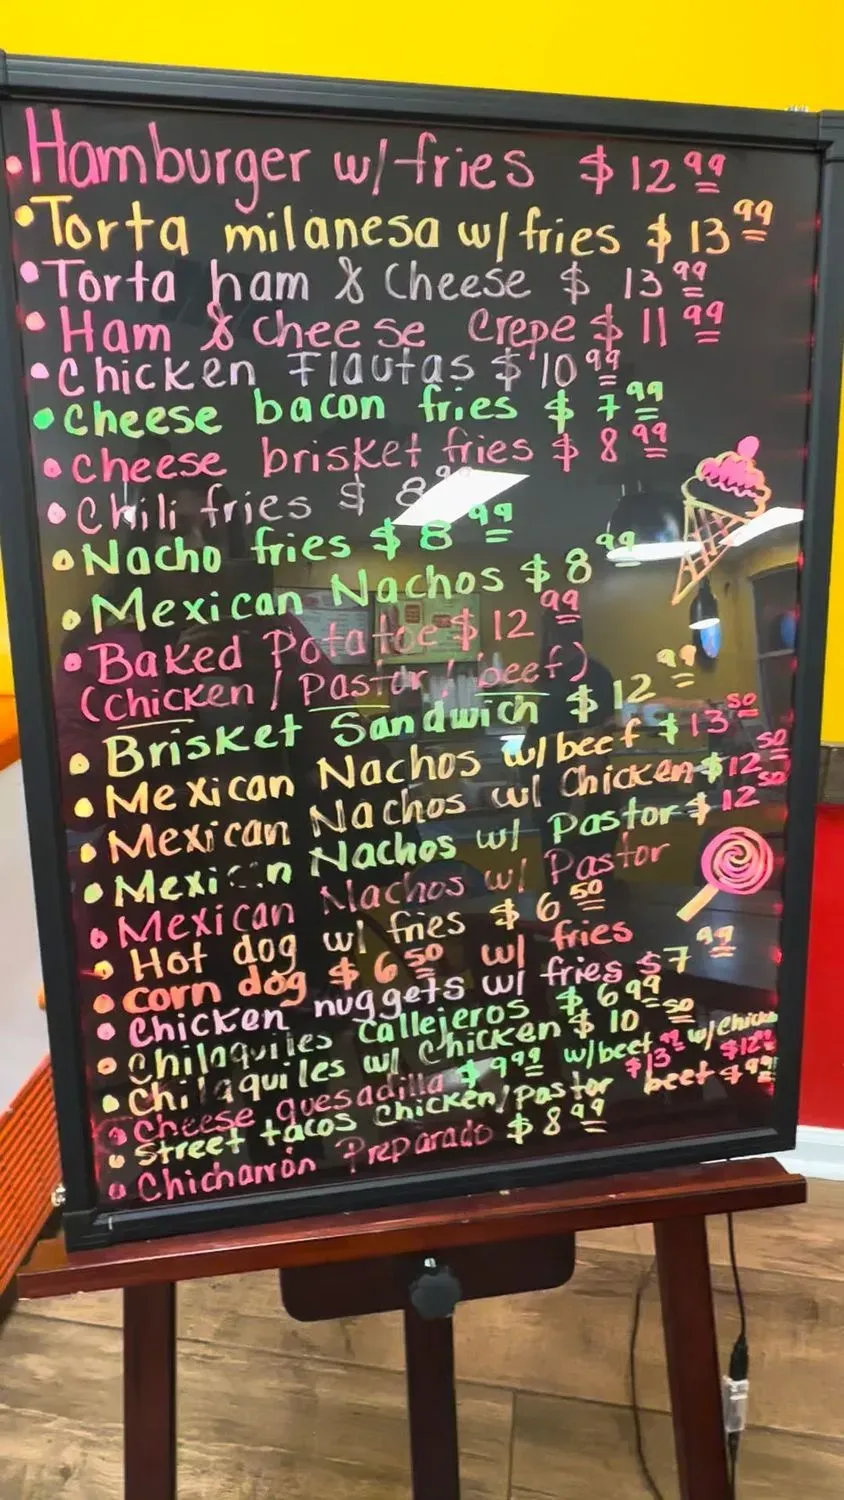 • Hamburger w/ fries $12 99
• Torta milanesa w/ fries $13 99
• Torta ham & Cheese $ 13 99
• Ham & cheese crepe $ 11 99
• Chicken Flautas $10 99
• Cheese bacon fries $ 7 99
• Cheese brisket fries $ 8 99
• Chili fries $ 8
• Nacho fries $ 8 99
• Mexican Nachos $ 8 99
• Baked Potatoe $ 12 99
(Chicken / Pastor / beef)
• Brisket Sandwich $ 12 99
• Mexican Nachos w/ beef $13 50
• Mexican Nachos w/ Chicken $12 50
• Mexican Nachos w/ Pastor $12 50
• Mexican Nachos w/ Pastor
• Hot dog w/ fries $ 6 50
• Corn dog $ 6 50 w/ fries
• Chicken nuggets w/ fries $7 99
• Chilaquiles Callejeros $ 6 99
• Chilaquiles w/ Chicken $ 10 50
• Cheese quesadilla $ 9 99 w/ beef $13 w/ Chicken $12
• Street tacos Chicken/Pastor beef $ 9 99
• Chicharrón Preparado $ 8 99